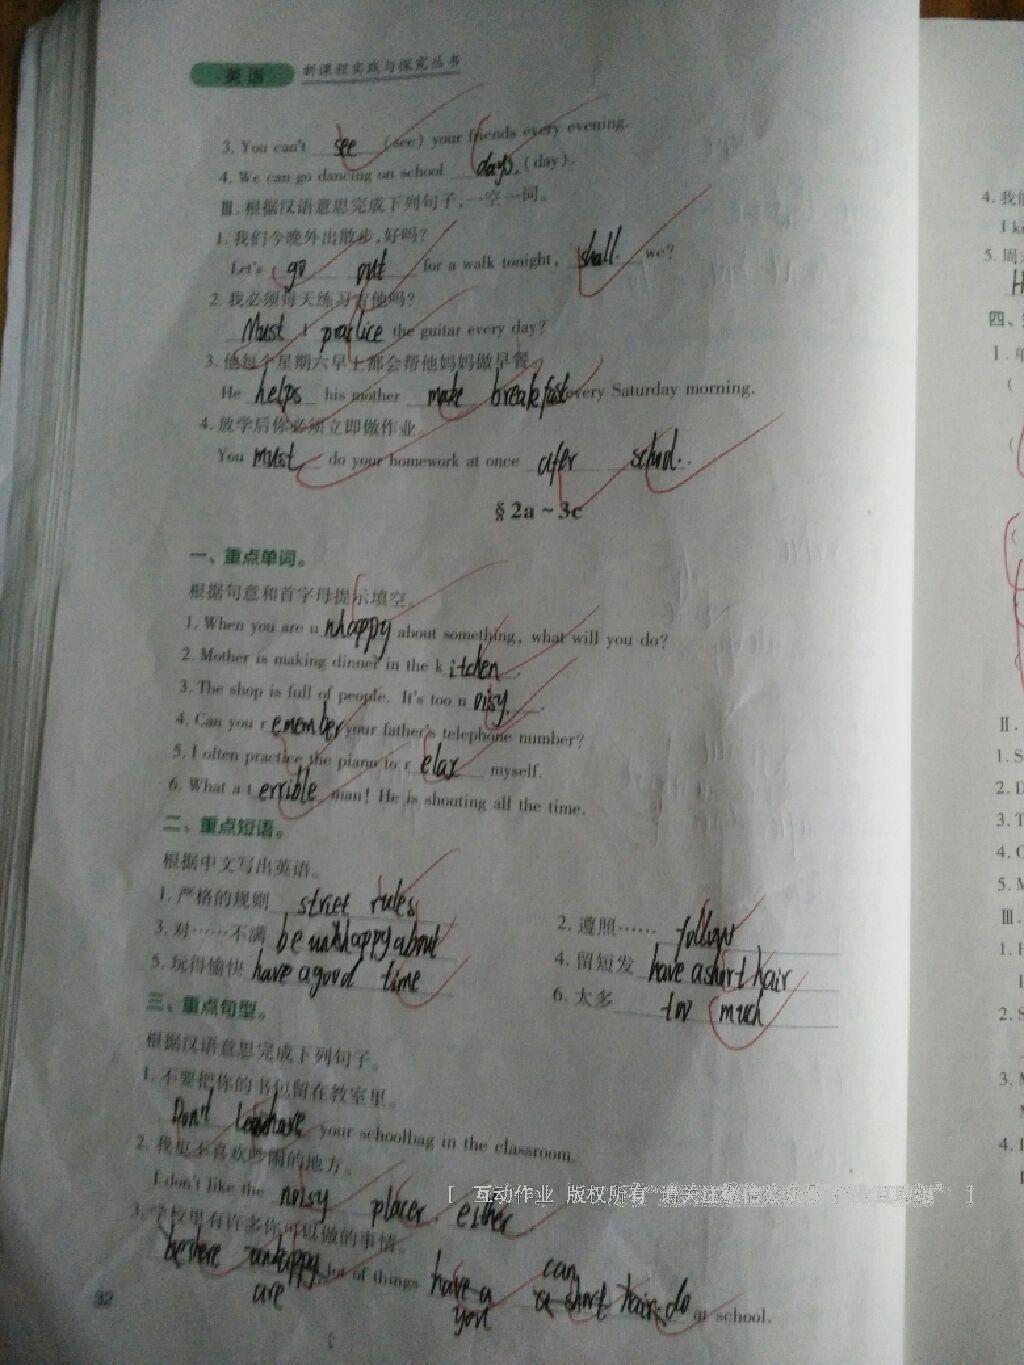 英语 新课程实践与探究丛书
3. You can't see (see) your friends every evening.
4. We can go dancing on school days. (day).
Ⅲ. 根据汉语意思完成下列句子,一空一词。
1. 我们今晚外出散步,好吗?
Let's go out for a walk tonight, shall we?
2. 我必须每天练习吉他吗?
Must I practice the guitar every day?
3. 他每个星期六早上都会帮他妈妈做早餐
He helps his mother make breakfast every Saturday morning.
4. 放学后你必须立即做作业。
You must do your homework at once after school.
§2a ~ 3c
一、重点单词。
根据句意和首字母提示填空。
1. When you are unhappy about something, what will you do?
2. Mother is making dinner in the kitchen.
3. The shop is full of people. It's too noisy.
4. Can you remember your father's telephone number?
5. I often practice the piano to relax myself.
6. What a terrible man! He is shouting all the time.
二、重点短语。
根据中文写出英语。
1. 严格的规则 rules 2. 遵照…… follow
3. 对……不满 be unhappy about 4. 留短发 have a short hair
5. 玩得愉快 have a good time 6. 太多 too much
三、重点句型。
根据汉语意思完成下列句子。
1. 不要把你的书包留在教室里。
Don't your schoolbag in the classroom.
2. 我也不喜欢吵闹的地方。
I don't like the noisy either
3. 学校里有许多你可以做的事情。
are lot of things you can do at school.
32
[ 互动作业 版权所有 ]
4. 我
5. 周
四、
Ⅰ.
Ⅱ.
1. S
2. D
3. T
4.
5. M
Ⅲ.
1.
2. S
3.
4.